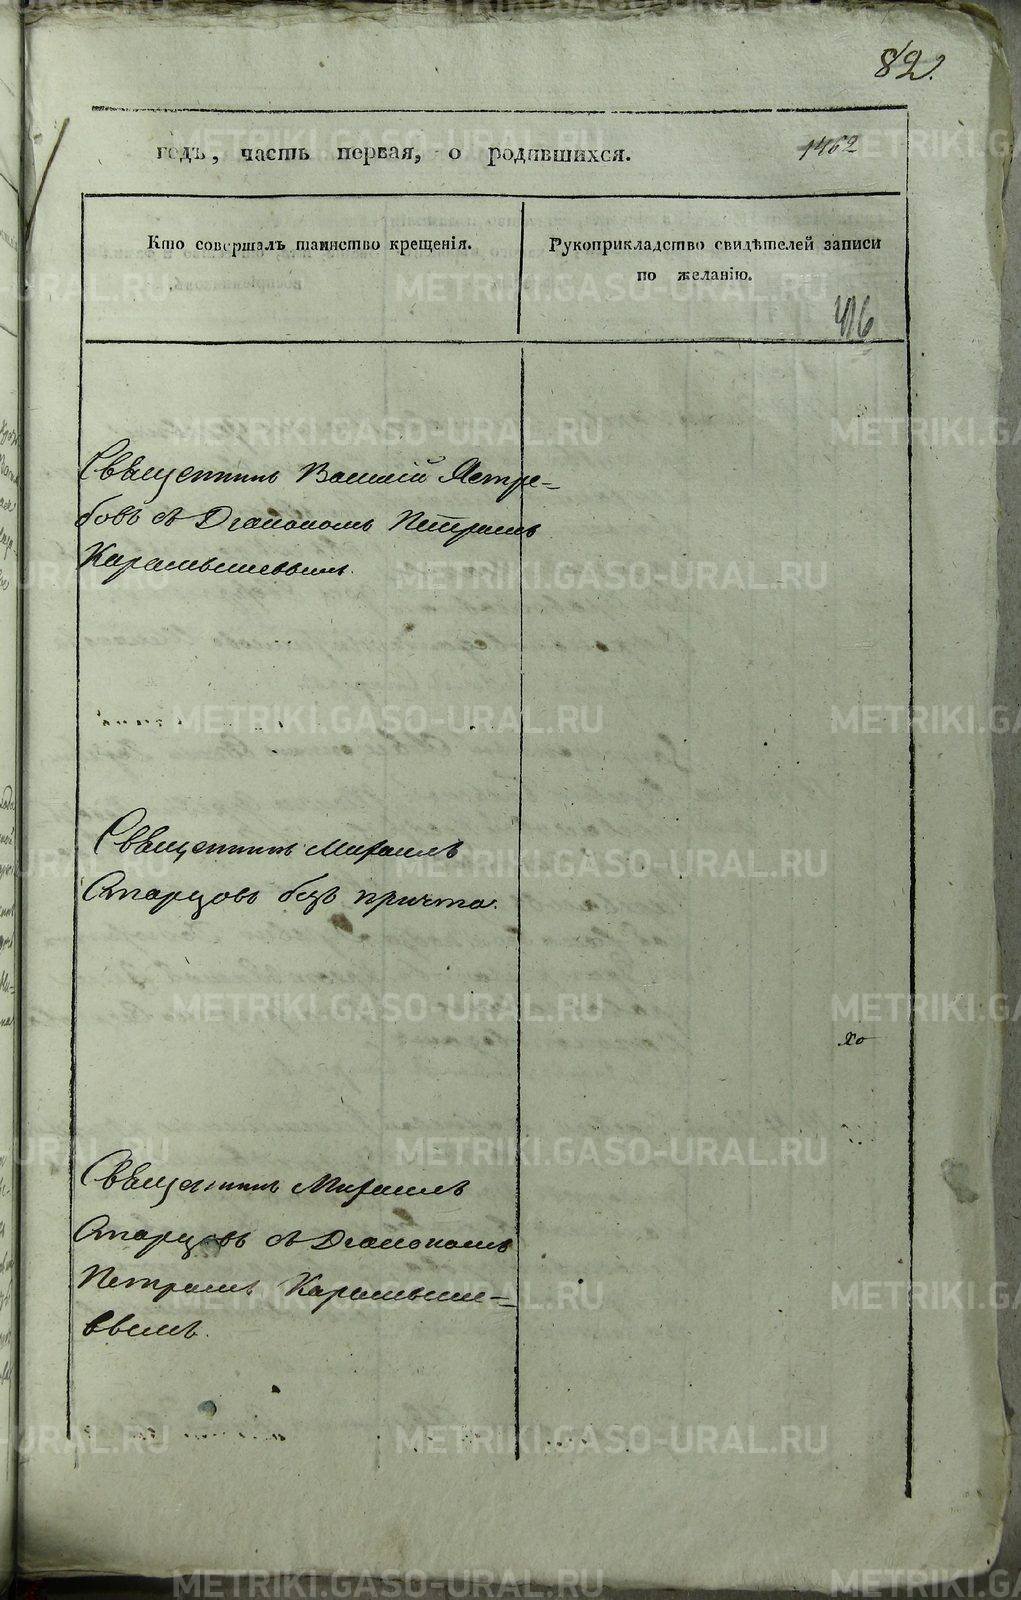 82.
годъ, часть первая, о родившихся.
1462
Кто совершалъ таинство крещенія.
Рукоприкладство свидѣтелей записи
по желанію.
416
Священникъ Василій Ястре-
бовъ съ Діакономъ Петромъ
Карамышевымъ.
Священникъ Михаилъ
Старцовъ безъ причта.
Священникъ Михаилъ
Старцовъ съ Діакономъ
Петромъ Карамыше-
вымъ.
METRIKI.GASO-URAL.RU